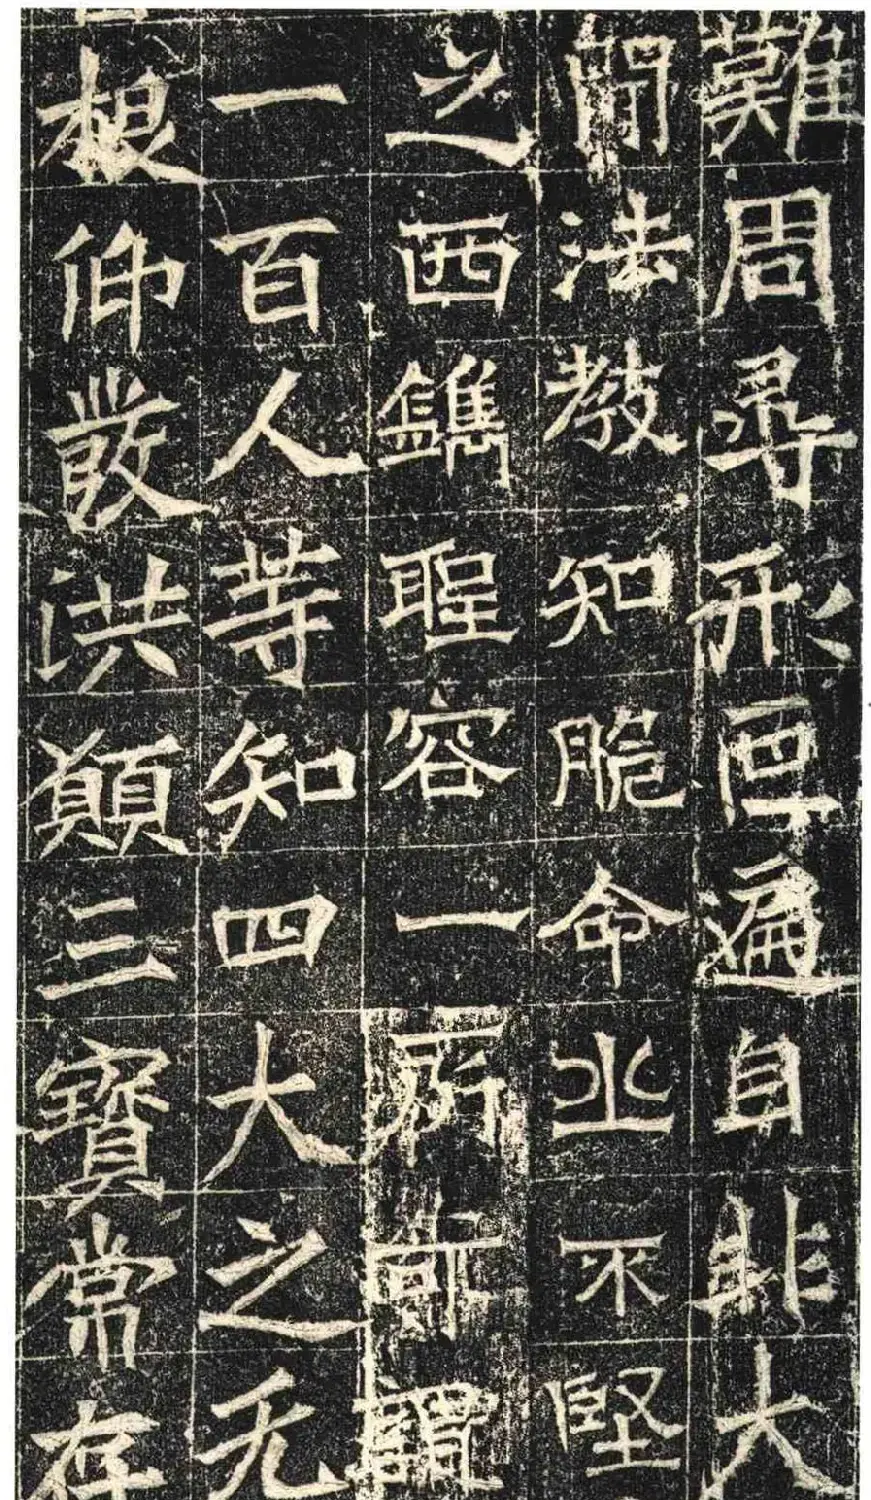 難周尋形叵遍自非大
聞法教知脆命之不堅
之西鐫聖容一所可謂
一百人等知四大之无
根仰發洪願三寶常存